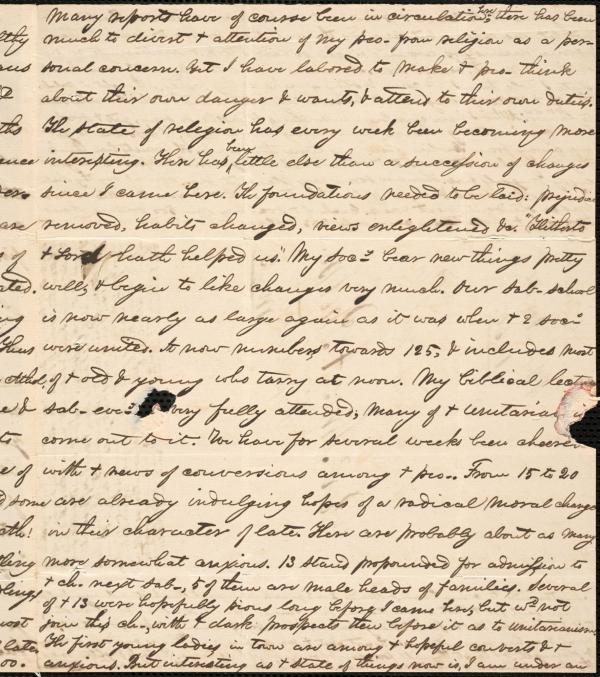 many reports have of course been in circulation, there has been
much to divert + attention of my peo- from religion as a per-
sonal concern. Yet I have labored to make + peo- think
about their own danger & wants, & attend to their own duties.
The state of religion has every week been becoming more
interesting. There has been little else than a succession of changes
since I came here. The foundations needed to be laid; prejudice
removed, habits changed, views enlightened &c. "Hitherto
+ Lord hath helped us." My soc- bear new things pretty
well, & begin to like changes very much. Our sab-school
is now nearly as large again as it was when + 2 soc-
were united. It now numbers towards 125, & includes most
of + old & young who tarry at noon. My biblical lectu
sab- eve: very fully attended; many of + Unitarian
come out to it. We have for several weeks been cheered
with + news of conversions among + peo-. From 15 to 20
are already indulging hopes of a radical moral change
in their character of late. There are probably about as many
more somewhat anxious. 13 stand propounded for admission to
+ ch. next sab-, 5 of them are male heads of families. Several
of + 13 were hopefully pious long before I came here, but wd not
join this ch-, with + dark prospects then before it as to unitarianism
The first young ladies in town are among + hopeful converts & +
anxious. But interesting as + state of things now is, I am under an